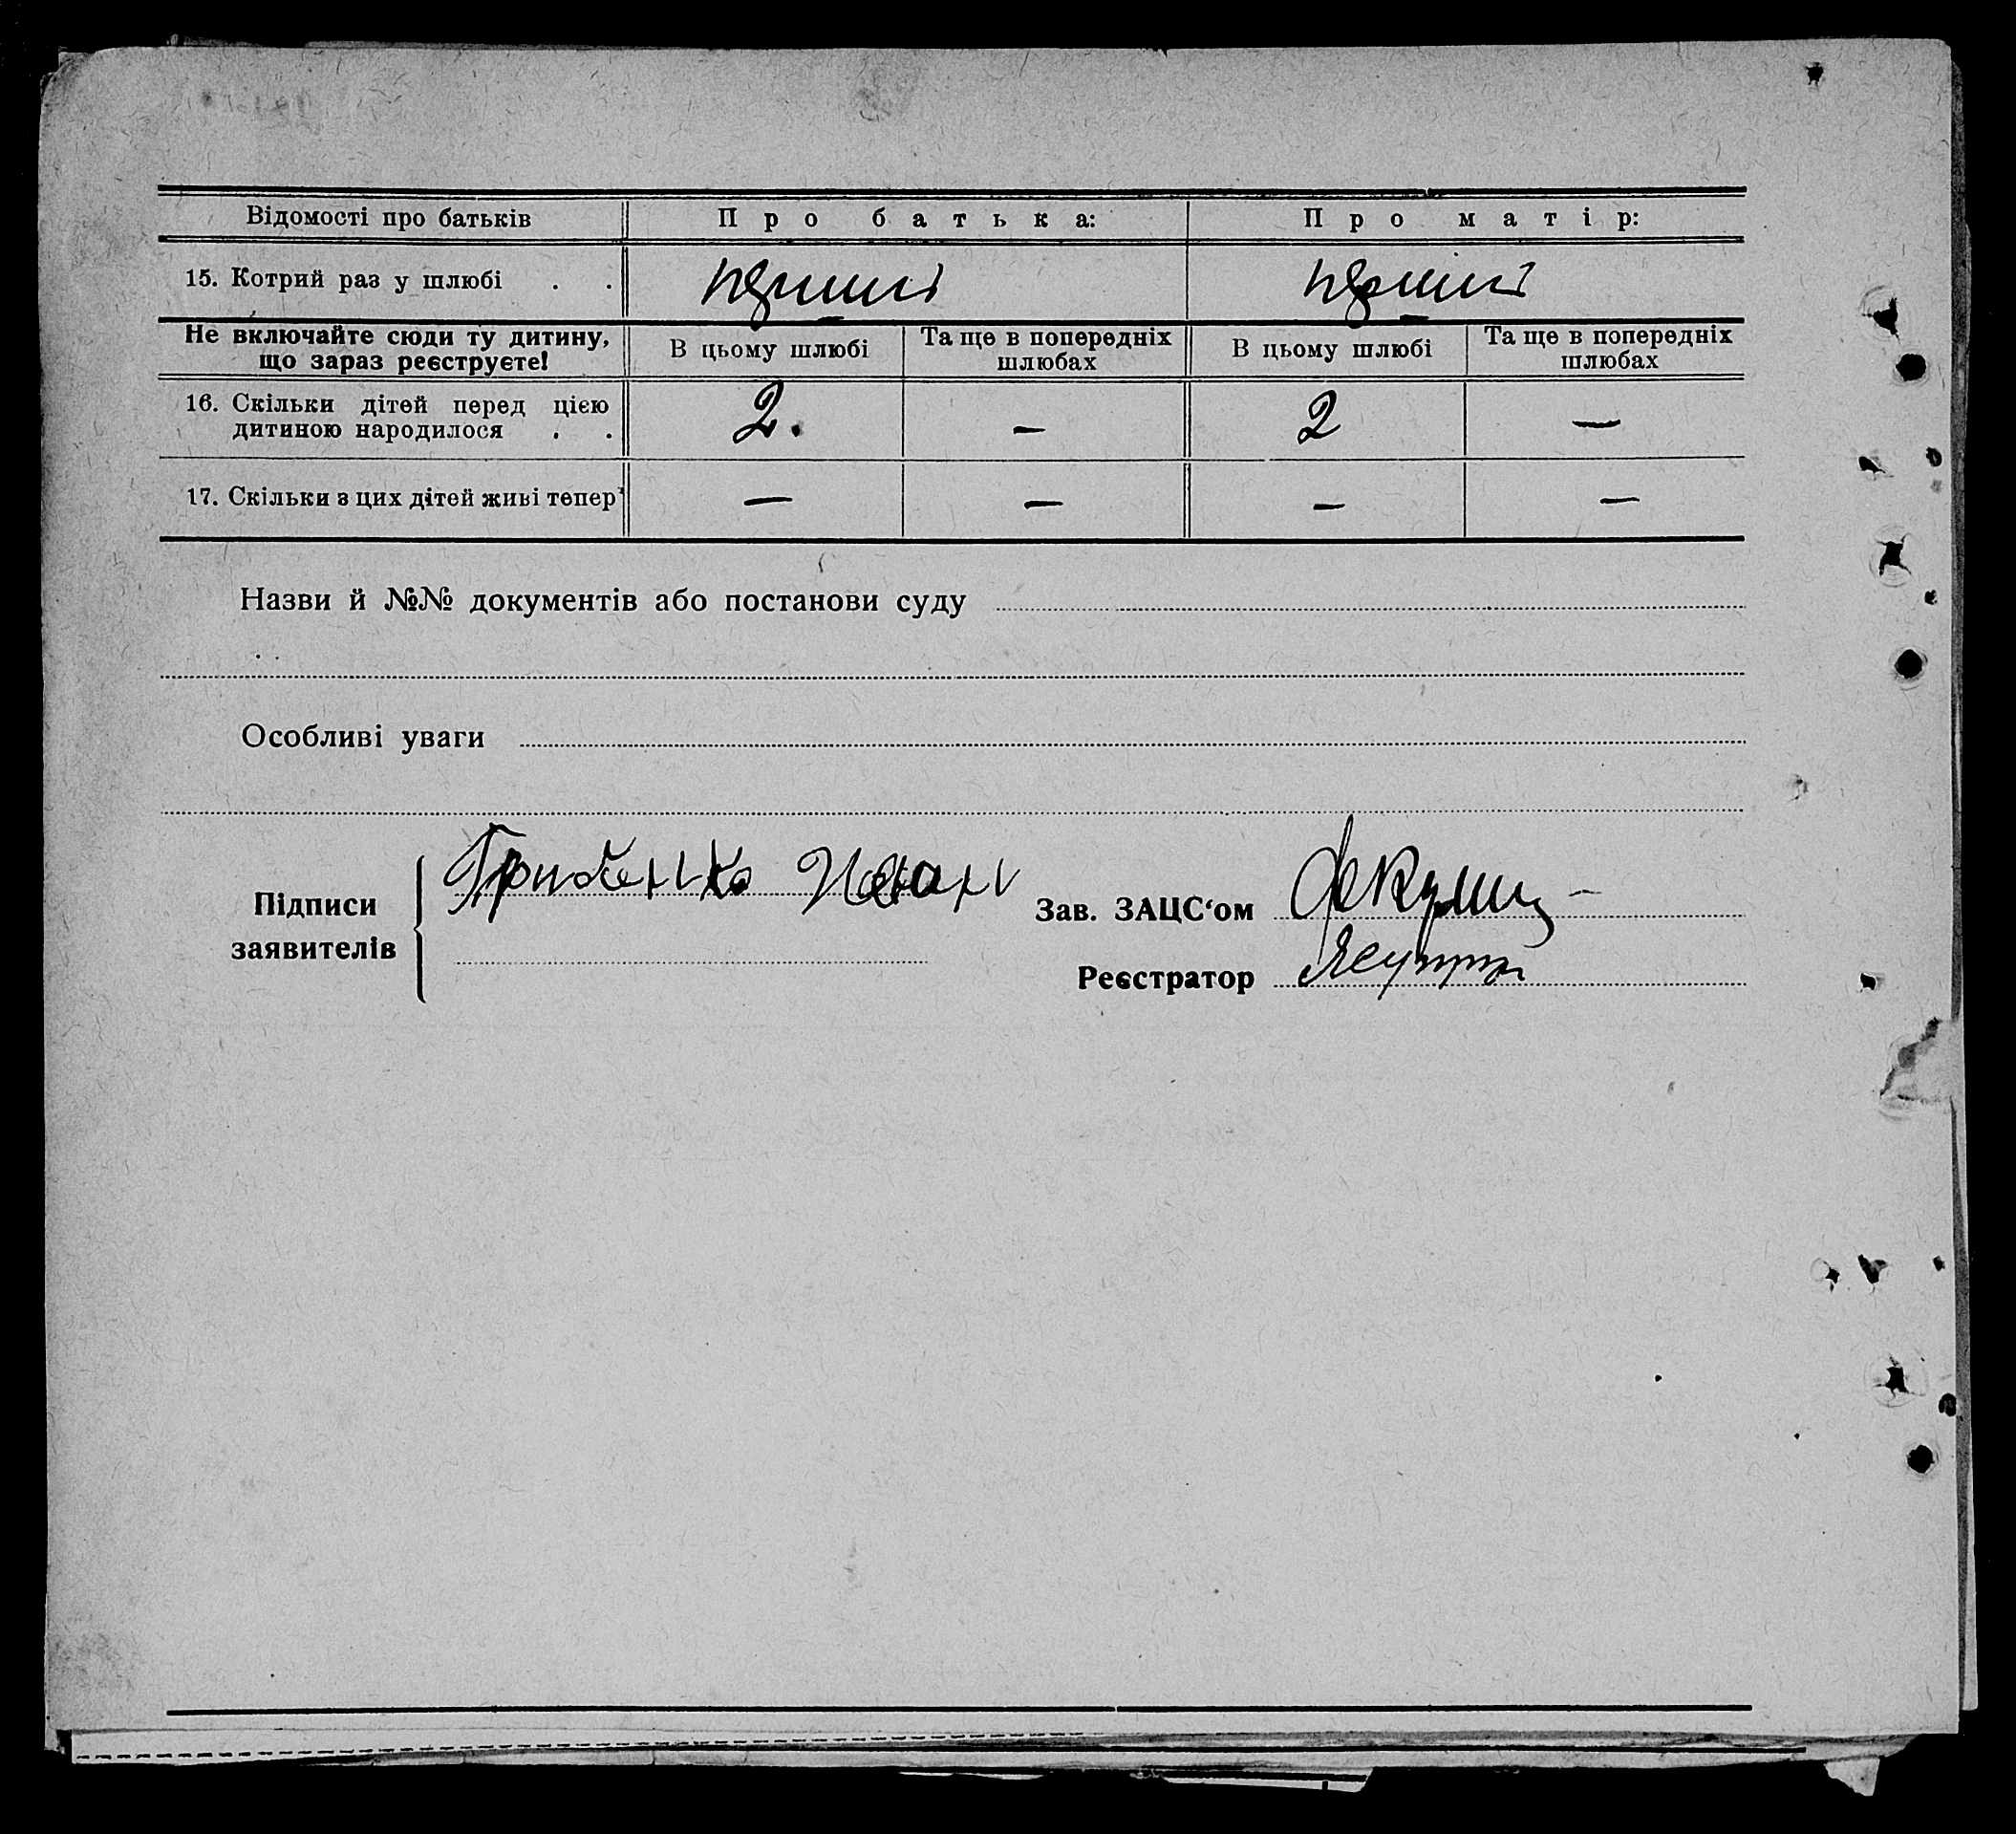 Відомості про батьків Про батька: Про матір:
15. Котрий раз у шлюбі . . перший перший
Не включайте сюди ту дитину, що зараз реєструєте! В цьому шлюбі Та ще в попередніх шлюбах В цьому шлюбі Та ще в попередніх шлюбах
16. Скільки дітей перед цією
дитиною народилося . . 2. — 2 —
17. Скільки з цих дітей живі тепер — — — —
Назви й №№ документів або постанови суду
Особливі уваги
Підписи
заявителів
Зав. ЗАЦС‘ом
Реєстратор